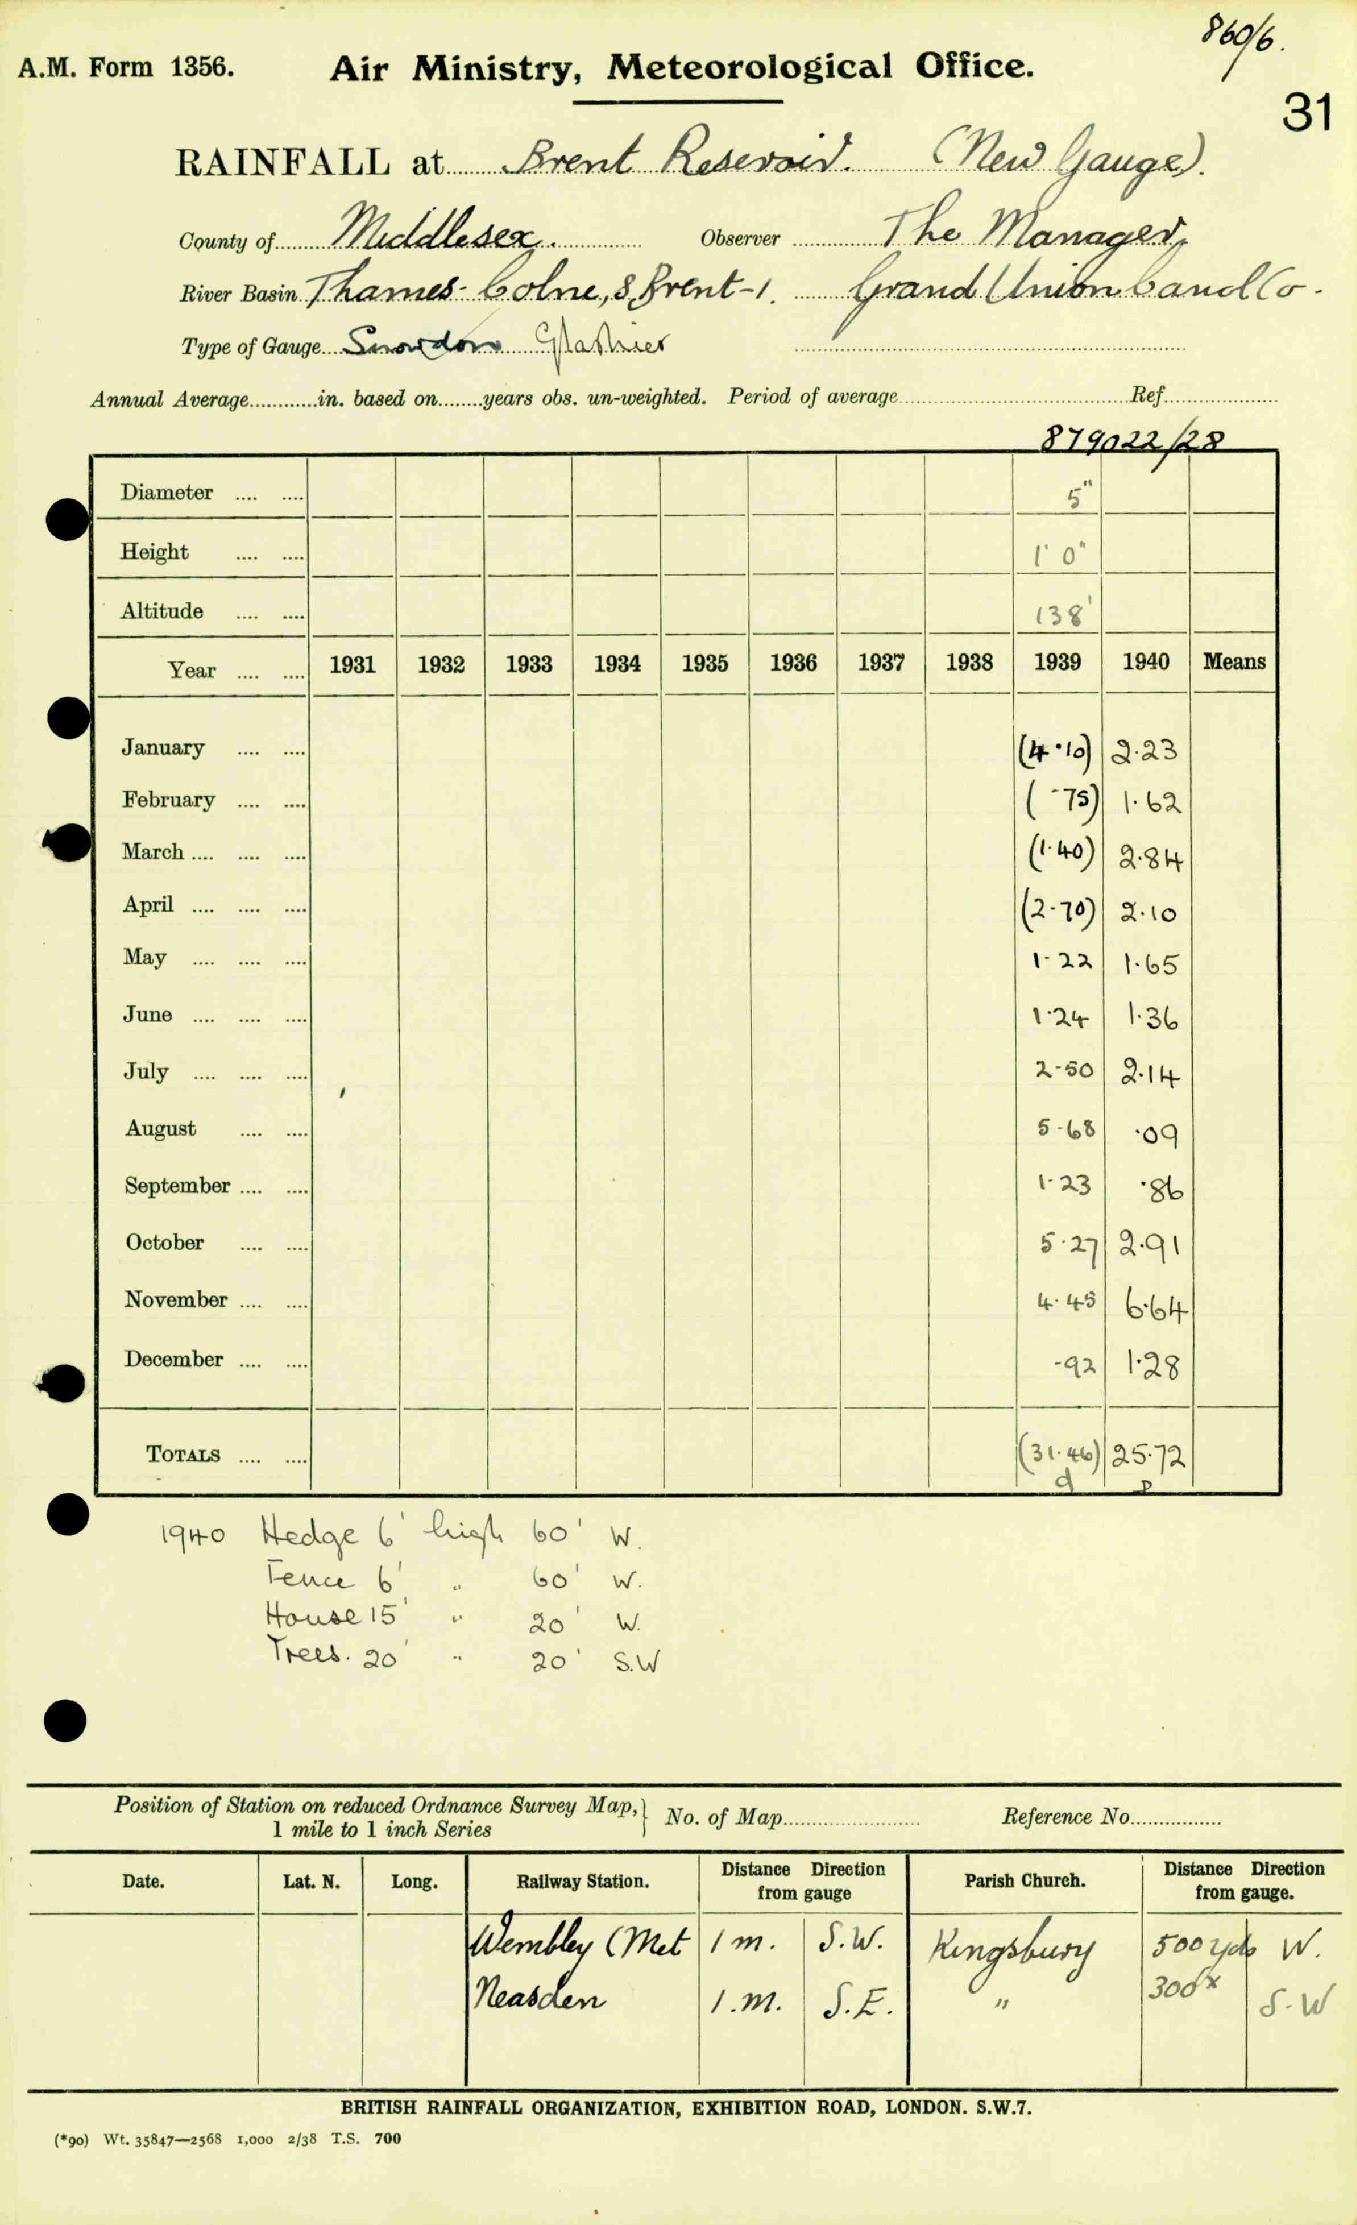 860/6.
A.M. Form 1356. Air Ministry, Meteorological Office.
31
RAINFALL at Brent Reservoir. (New Gauge).
County of Middlesex. Observer The Manager,
River Basin Thames-Colne, & Brent-1. Grand Union Canal Co.
Type of Gauge Snowdon Glashier
Annual Average in. based on years obs. un-weighted. Period of average Ref.
879022/28
Diameter .... .... 5"
Height .... .... 1' 0"
Altitude .... .... 138'
Year .... .... 1931 1932 1933 1934 1935 1936 1937 1938 1939 1940 Means
January .... .... (4.10) 2.23
February .... .... (.75) 1.62
March .... .... .... (1.40) 2.84
April .... .... .... (2.70) 2.10
May .... .... .... 1.22 1.65
June .... .... .... 1.24 1.36
July .... .... .... 2.50 2.14
August .... .... 5.68 .09
September .... .... 1.23 .86
October .... .... 5.27 2.91
November .... .... 4.45 6.64
December .... .... .92 1.28
TOTALS .... .... (31.46) 25.72
d
1940 Hedge 6' high 60' W.
Fence 6' " 60' W.
House 15' " 20' W.
Trees. 20' " 20' S.W
Position of Station on reduced Ordnance Survey Map, } No. of Map Reference No.
1 mile to 1 inch Series
Date. Lat. N. Long. Railway Station. Distance Direction from gauge Parish Church. Distance Direction from gauge.
Wembley (Met 1 m. S.W. Kingsbury 500 yds W.
Neasden 1.m. S.E. " 300x S.W
BRITISH RAINFALL ORGANIZATION, EXHIBITION ROAD, LONDON. S.W.7.
(*90) Wt. 35847—2568 1,000 2/38 T.S. 700